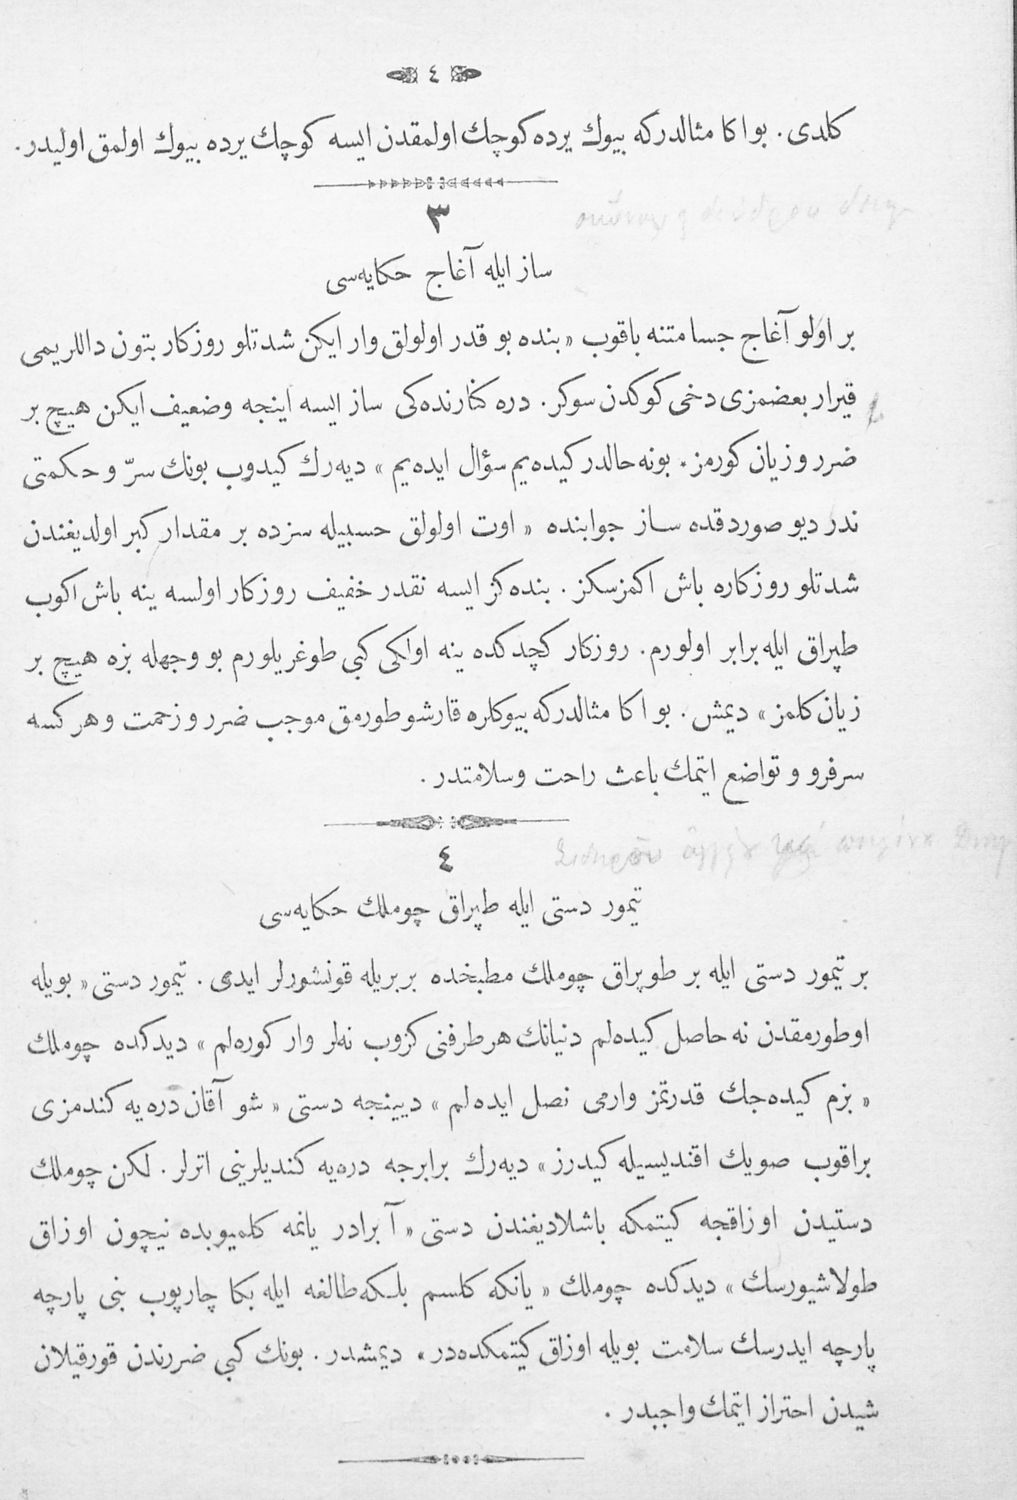 ٤
كلدى . بو اكا مثالدركه بيوك يرده كوچك اولمقدن ايسه كوچك يرده بيوك اولمق اوليدر .
٣
ساز ايله آغاج حكايه‌سى
بر اولو آغاج جسامتنه باقوب « بنده بو قدر اولولق وار ايكن شدتلو روزكار بتون داللريمى
قيرار بعضمزى دخى كوكدن سوكر . دره كنارنده‌كى ساز ايسه اينجه وضعيف ايكن هيچ بر
ضرر و زيان كورمز . بونه حالدر كيده‌يم سؤال ايده‌يم » ديه‌رك كيدوب بونك سرّ و حكمتى
ندر ديو صوردقده ساز جوابنده « اوت اولولق حسبيله سزده بر مقدار كبر اولديغندن
شدتلو روزكاره باش اكمزسكز . بنده‌كز ايسه نقدر خفيف روزكار اولسه ينه باش اكوب
طپراق ايله برابر اولورم . روزكار كچدكده ينه اولكى كبى طوغريلورم بو وجهله بزه هيچ بر
زيان كلمز » ديمش . بو اكا مثالدركه بيوكلره قارشو طورمق موجب ضرر و زحمت و هر كسه
سرفرو و تواضع ايتمك باعث راحت وسلامتدر .
٤
تيمور دستى ايله طپراق چوملك حكايه‌سى
بر تيمور دستى ايله بر طوپراق چوملك مطبخده بربريله قونشورلر ايدى . تيمور دستى « بويله
اوطورمقدن نه حاصل كيده‌لم دنيانك هر طرفنى كزوب نه‌لر وار كوره‌لم » ديدكده چوملك
« بزم كيده‌جك قدرتمز وارمى نصل ايده‌لم » ديينجه دستى « شو آقان دره‌يه كندمزى
براقوب صويك اقنديسيله كيدرز » ديه‌رك برابرجه دره‌يه كنديلرينى اترلر . لكن چوملك
دستيدن اوزاقجه كيتمكه باشلاديغندن دستى « آ برادر يانمه كلميوبده نيچون اوزاق
طولاشيورسك » ديدكده چوملك « يانكه كلسم بلكه طالغه ايله بكا چارپوب بنى پارچه
پارچه ايدرسك سلامت بويله اوزاق كيتمكده‌در » ديمشدر . بونك كبى ضررندن قورقيلان
شيدن احتراز ايتمك واجبدر .